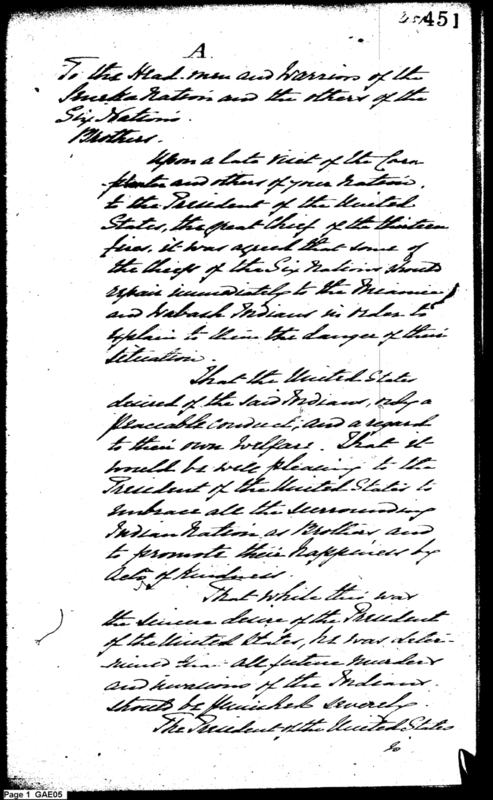 451
A
To the Head-men and Warriors of the
Seneka Nation and the others of the
Six Nations.
Brothers.
Upon a late visit of the Corn
planter and others of your Nation,
to the President of the United
States, the great Chief of the thirteen
fires, it was agreed that some of
the Chiefs of the Six Nations should
repair immediately to the Miamie
and Wabash Indians in order to
explain to them the danger of their
situation.
That the United States
desired of the said Indians, only a
peaceable conduct, and a regard
to their own welfare. That it
would be well pleasing to the
President of the United States to
embrace all the surrounding
Indian Nation as Brothers and
to promote their happiness by
Acts of kindness.
That while this was
the sincere desire of the President
of the United States, he was deter-
mined all future murders
and invasions of the Indians
should be punished severely.
The President of the United States
Page 1 GAE05